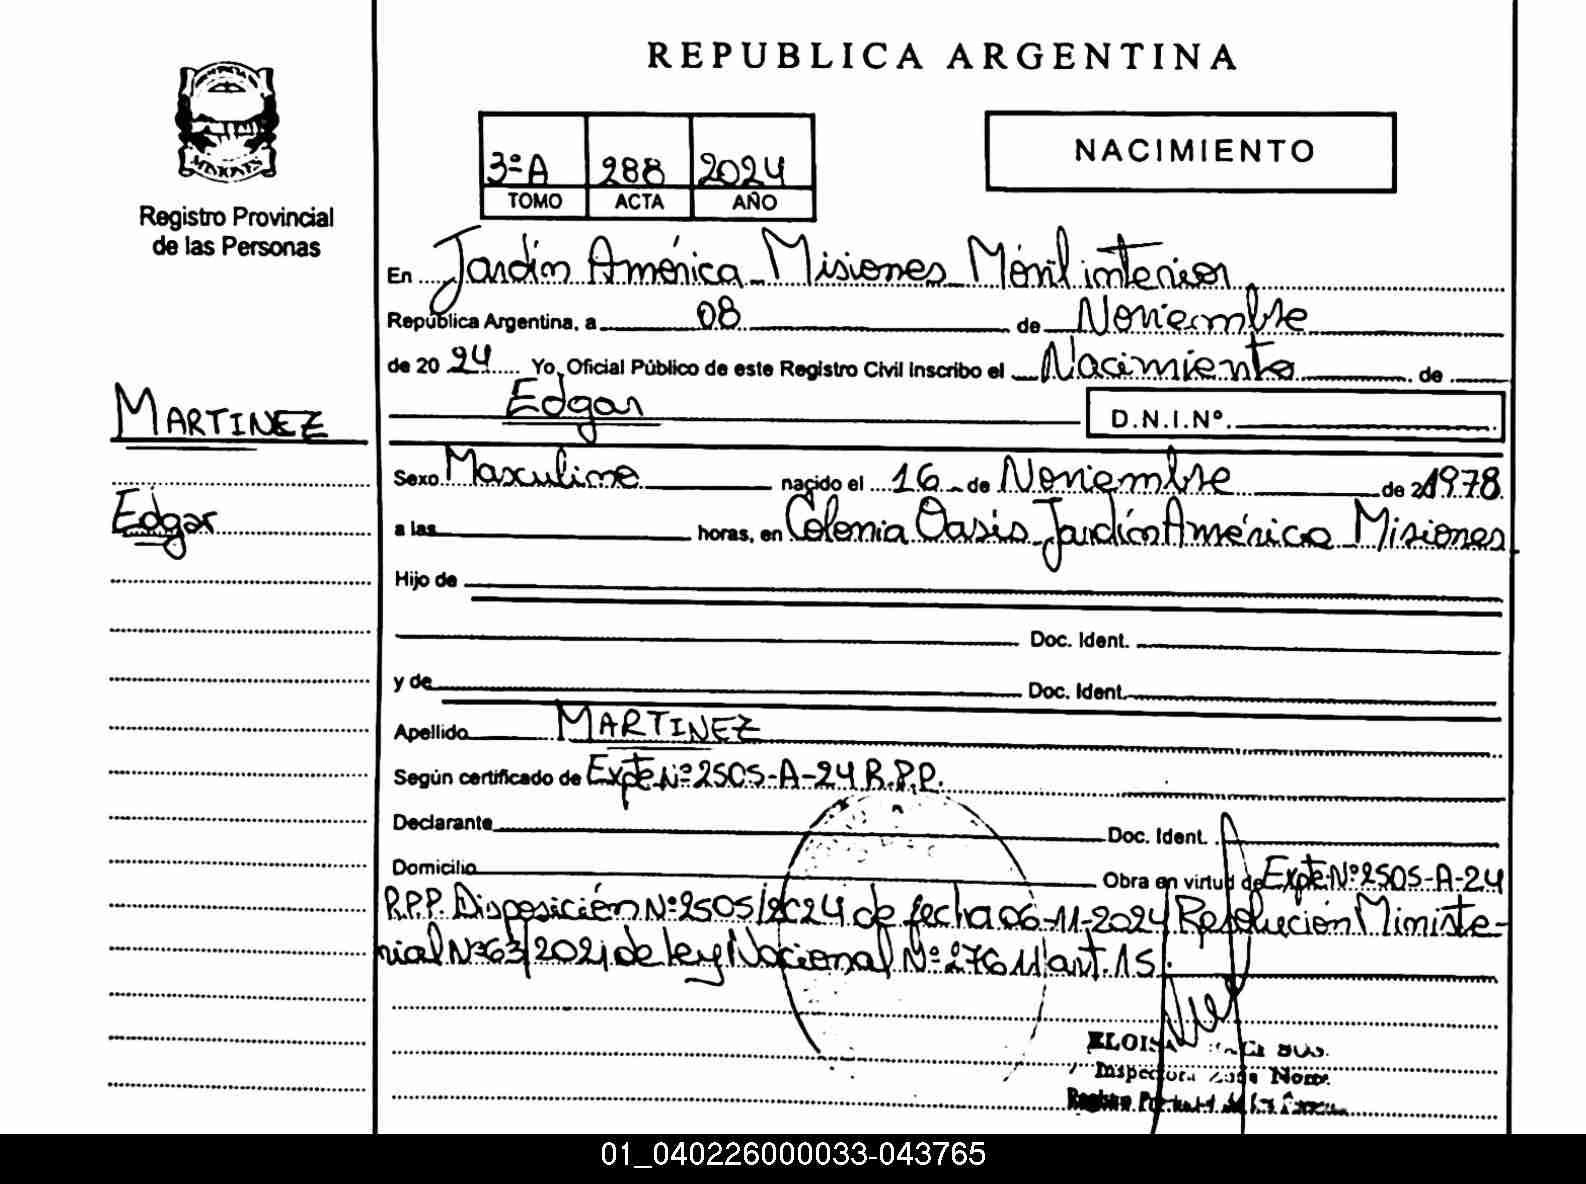 REPUBLICA ARGENTINA
MISIONES
Registro Provincial
de las Personas
3ºA 288 2024
TOMO ACTA AÑO
NACIMIENTO
En Jardín América Misiones Móvil interior
República Argentina, a 08 de Noviembre
de 20 24 Yo, Oficial Público de este Registro Civil Inscribo el Nacimiento de
Edgar D.N.I.Nº.
MARTINEZ
Edgar
Sexo Masculino nacido el 16 de Noviembre de 1978
a las horas, en Colonia Oasis Jardín América Misiones
Hijo de
Doc. Ident.
y de Doc. Ident.
Apellido MARTINEZ
Según certificado de Expte Nº 2505-A-24 R.P.P.
Declarante Doc. Ident.
Domicilio Obra en virtud de Expte Nº 2505-A-24
R.P.P. Disposición Nº 2505/2024 de fecha 06-11-2024 Resolución Ministe-
rial Nº 63/2021 de ley Nacional Nº 27611 art. 15.
Inspectora Zona Norte
01_040226000033-043765